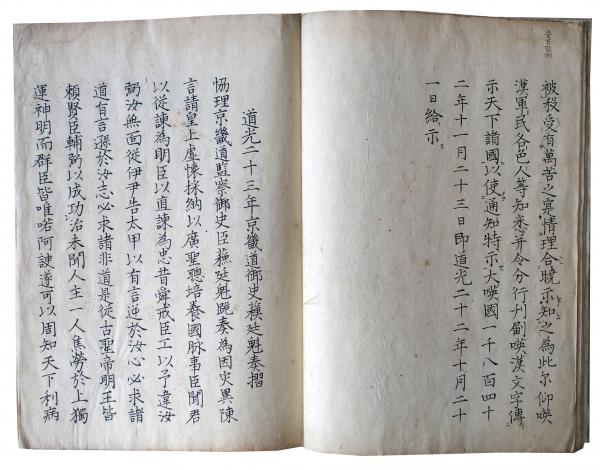 被殺受有萬苦之寔情理合曉示知之為此尔仰𠸄
漢軍民各邑人等知悉并令分行刊刷𠸄漢文字傳
示天下諸國以使通知特示大𠸄國一千八百四十
二年十一月二十三日即道光二十二年十月二十
一日給示
道光二十三年京畿道御史蘓廷魁奏摺
恊理京畿道監察御史臣蘓廷魁跪奏為因灾異陳
言請皇上虛懷採納以廣聖聰培養國脉事臣聞君
以從諫為明臣以直諫為忠昔舜戒臣工以予違汝
弼汝無面從伊尹告太甲以有言逆於汝心必求諸
道有言孫於汝志必求諸非道是從古聖帝明王皆
頼賢臣輔弼以成功治未聞人主一人焦勞於上獨
運神明而群臣皆唯喏阿諛遂可以周知天下利病